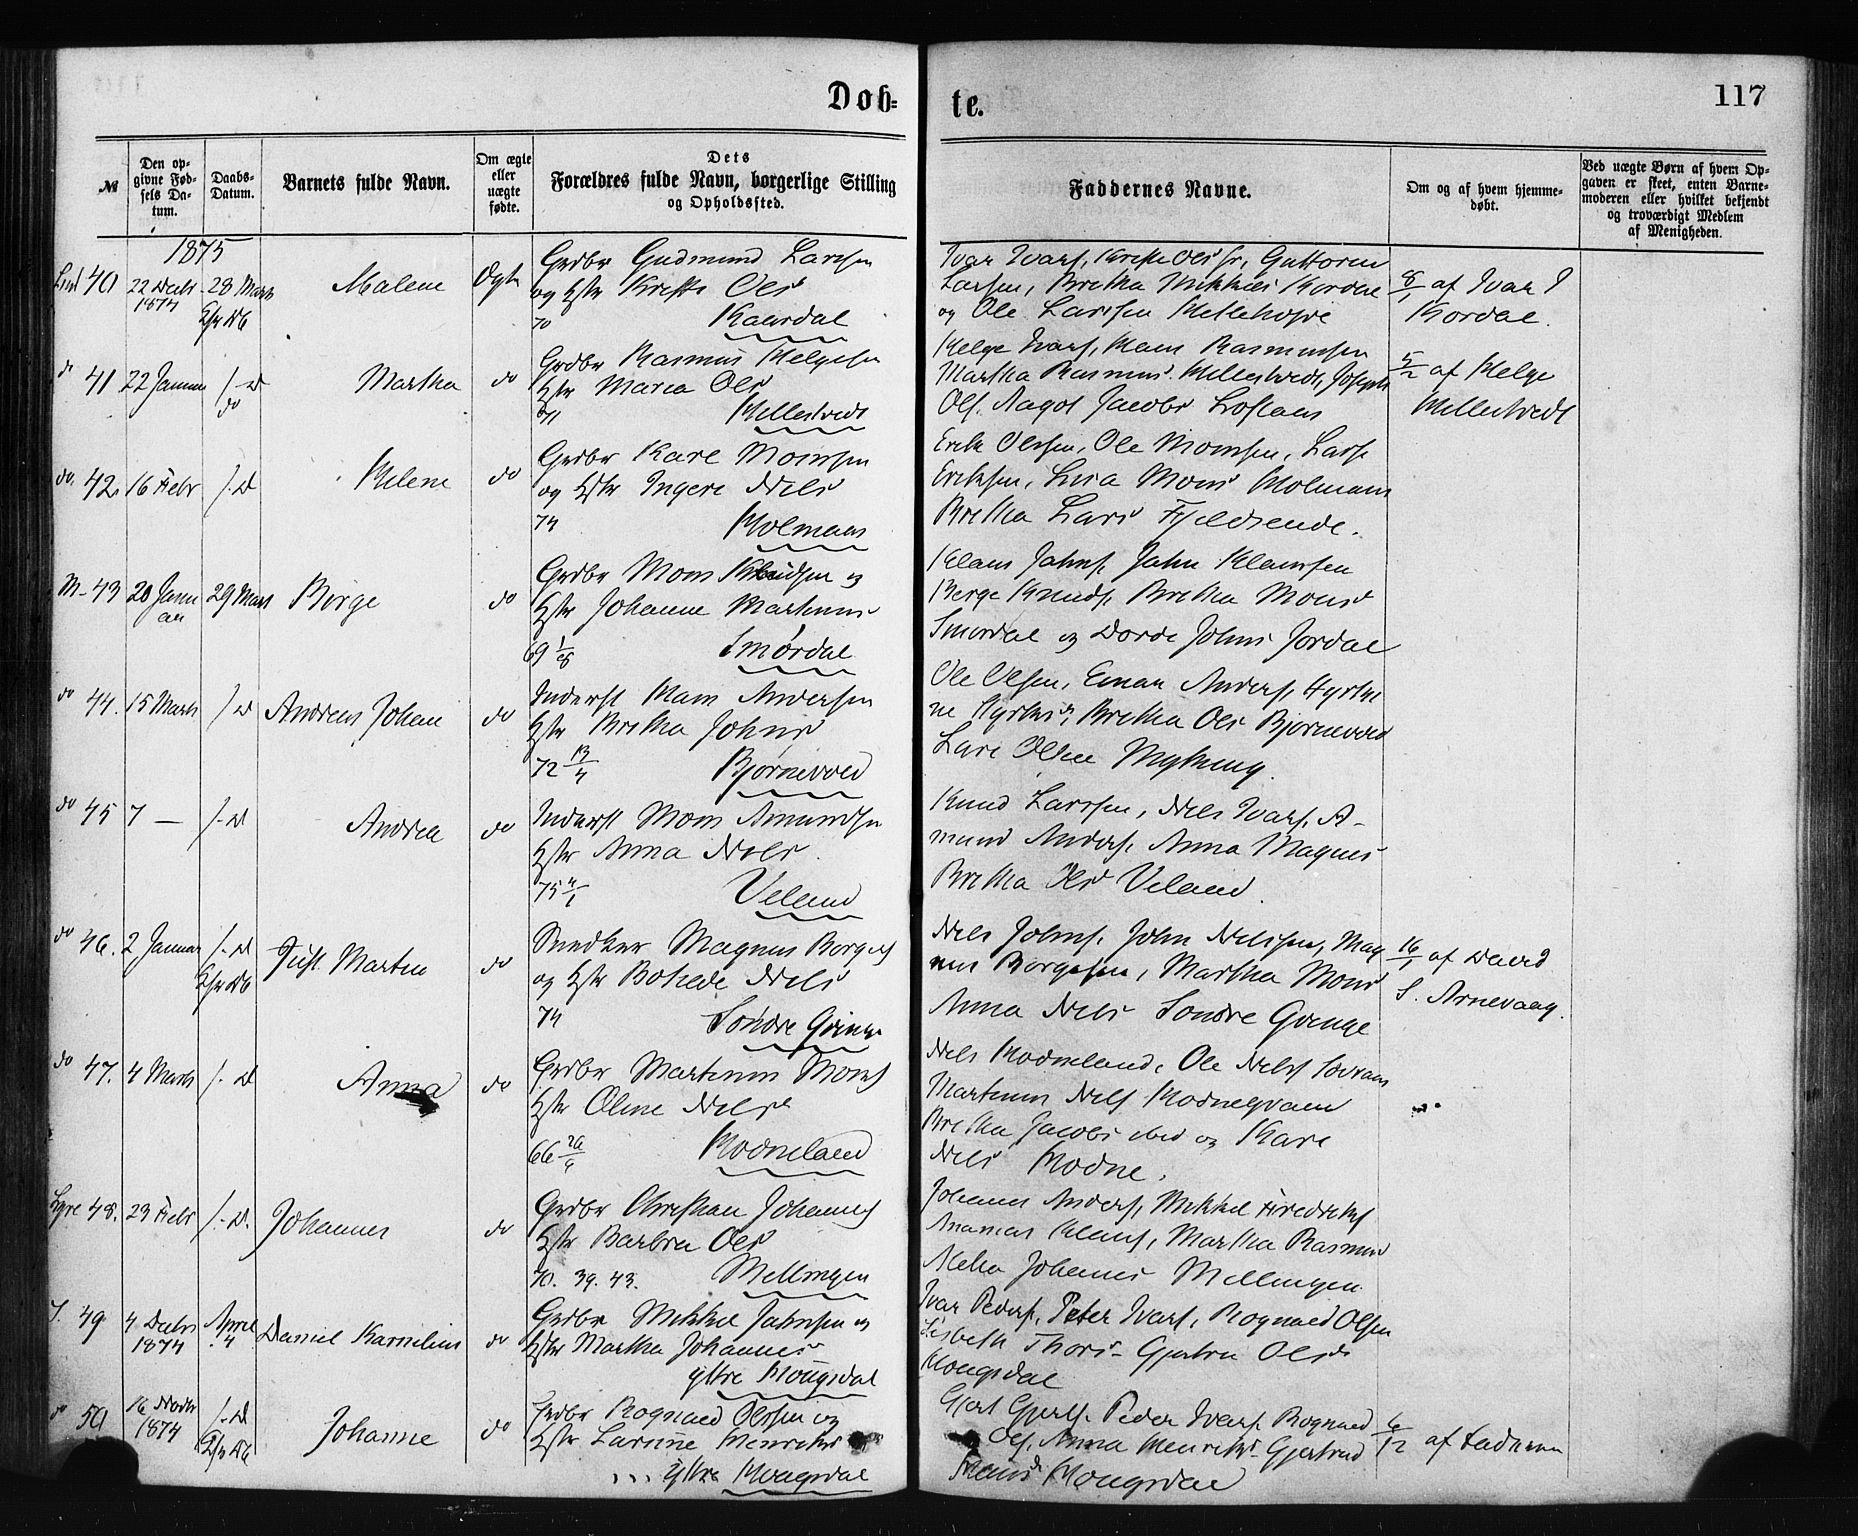 Døb=
te.
117
№
Den op-
givne Fød-
sels Da-
tum.
Daabs-
Datum.
Barnets fulde Navn.
Om ægte
eller
uægte
fødte.
Dets
Forældres fulde Navn, borgerlige Stilling
og Opholdssted.
Faddernes Navne.
Om og af hvem hjemme-
døbt.
Ved uægte Børn af hvem Op-
gaven er skeet, enten Barne-
moderen eller hvilket bekjendt
og troværdigt Medlem
af Menigheden.
1875
40
22 Decbr
1874
28 Marts
Malene
Ægte
Grdbr Gudmund Larssen
og Hstr Kristi Ols
70
Kaardal
Ivar Ivars,
Larssen, Bretha Mikkels Kordal
og Ole Larssen
8/1 af Ivar I
Kordal.
do 41
22 Januar
Martha
do
Grdbr Rasmus Helgesen
Hstr Maria Ols
71
Hellestvedt
Helge Ivars, Mons Rasmussen
Martha Rasmus Hellestvedt, Joseph
Ols. Aagot Jacobs
5/2 af Helge
Hellestvedt
do. 42.
16 Febr
Helene
do
Grdbr Karl Monssen
og Hstr Ingeri Nils
74
Holmaas
Erik Olssen, Ole Monssen, Lars
Eriksen, Lisa Mons Holmaas
Bretha Lars Fjeldsende.
M- 43
28 Janu
ar
29 Marts
Børge
do
Grdbr Mons Knudsen og
Hstr Johanne Martinus
69 1/8
Smørdal
Klaus Jahns, Jahn Klaussen
Børge Knuds, Bretha Mons
Smørdal og Dorde Johns Jordal
do 44.
15 Marts
Andreas Johan
do
Inderst Mons Andersen
Hstr Bretha Johns
72 13/4
Bjørnevold
Ole Olsen, Einar Anders,
Bretha Ols Bjørnevold
Lars Olsen Myking.
do 45
7 —
Andrea
do
Inderst Mons Amundsen
Hstr Anna Nils.
75 4/1
Veland
Knud Larssen, Nils Ivars, A-
mund Anders. Anna Magnus
Bretha Ols Veland.
do 46.
2 Januar
Just Martin
do
Snedker Magnus Børges
og Hstr Botilde Nils
74
Søndre Qvinge
Nils Johns. John Nilssen, Mag
nus Børgesen, Martha Mons
Anna Nils Søndre Qvinge
16/1 af David
S. Arnevaag.
do 47.
4 Marts
Anna
do
Grdbr Martinus Mons
Hstr Oline Nils
66 26/6
Hodneland
Nils Hodneland, Ole Nils
Martinus Nils Hodneqvam
Bretha Jacobs ibid og Kari
Nils Hodne.
48.
23 Febr
Johannes
do
Grdbr Christian Johannes
Hstr Barbra Ols
70. 39. 43.
Mellingen
Johannes Anders, Mikkel Fredriks
Ananias Klaus, Martha Rasmus
Johannes Mellingen.
49.
4 Decbr
1874
April
4
Daniel Kornelius
do
Grdbr Mikkel Jahnsen og
Hstr Martha Johannes
Yttre Hougsdal
Ivar Peders, Peter Ivars, Rognald Olsen
Lisbeth Thors- Gjertru Ols
Hougsdal
do 50
16 Novbr
1874
Johanne
do
Grdbr Rognald Olssen og
Hstr Larsine Henriks
Yttre Hougsdal
Gjert Gjerts. Peder Ivars. Rognald
Ols, Anna Henriks Gjertrud
Hougsdal
6/12 af Faderen